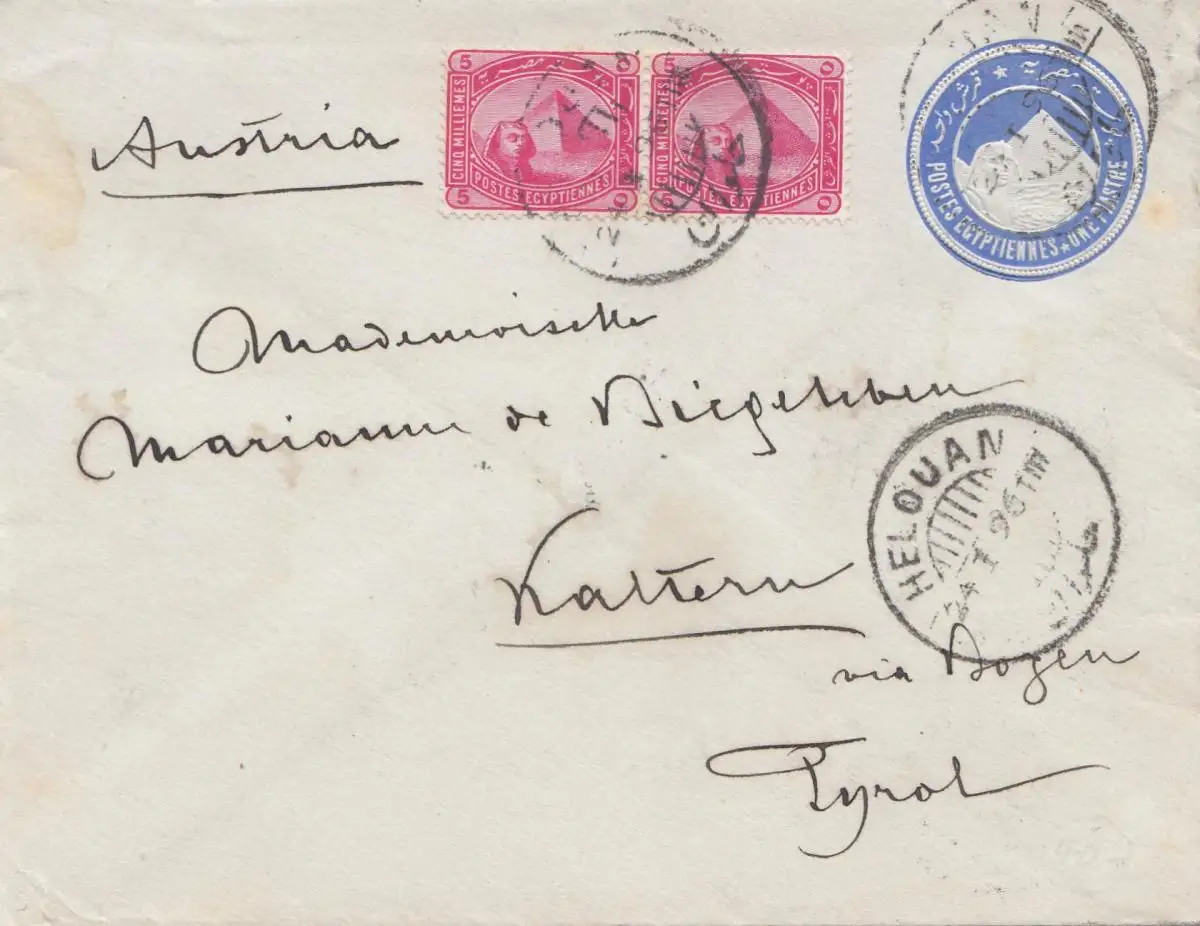 Austria
5
CINQ MILLIEMES
5
POSTES EGYPTIENNES
٥
CINQ MILLIEMES
POSTES EGYPTIENNES
٥
٥
قرش واحد
POSTES EGYPTIENNES ★ UNE PIASTRE
Mademoiselle
Marianne de Biegeleben
HELOUAN
24 I 96 T III
حلوان
Kaltern
via Bozen
Tyrol